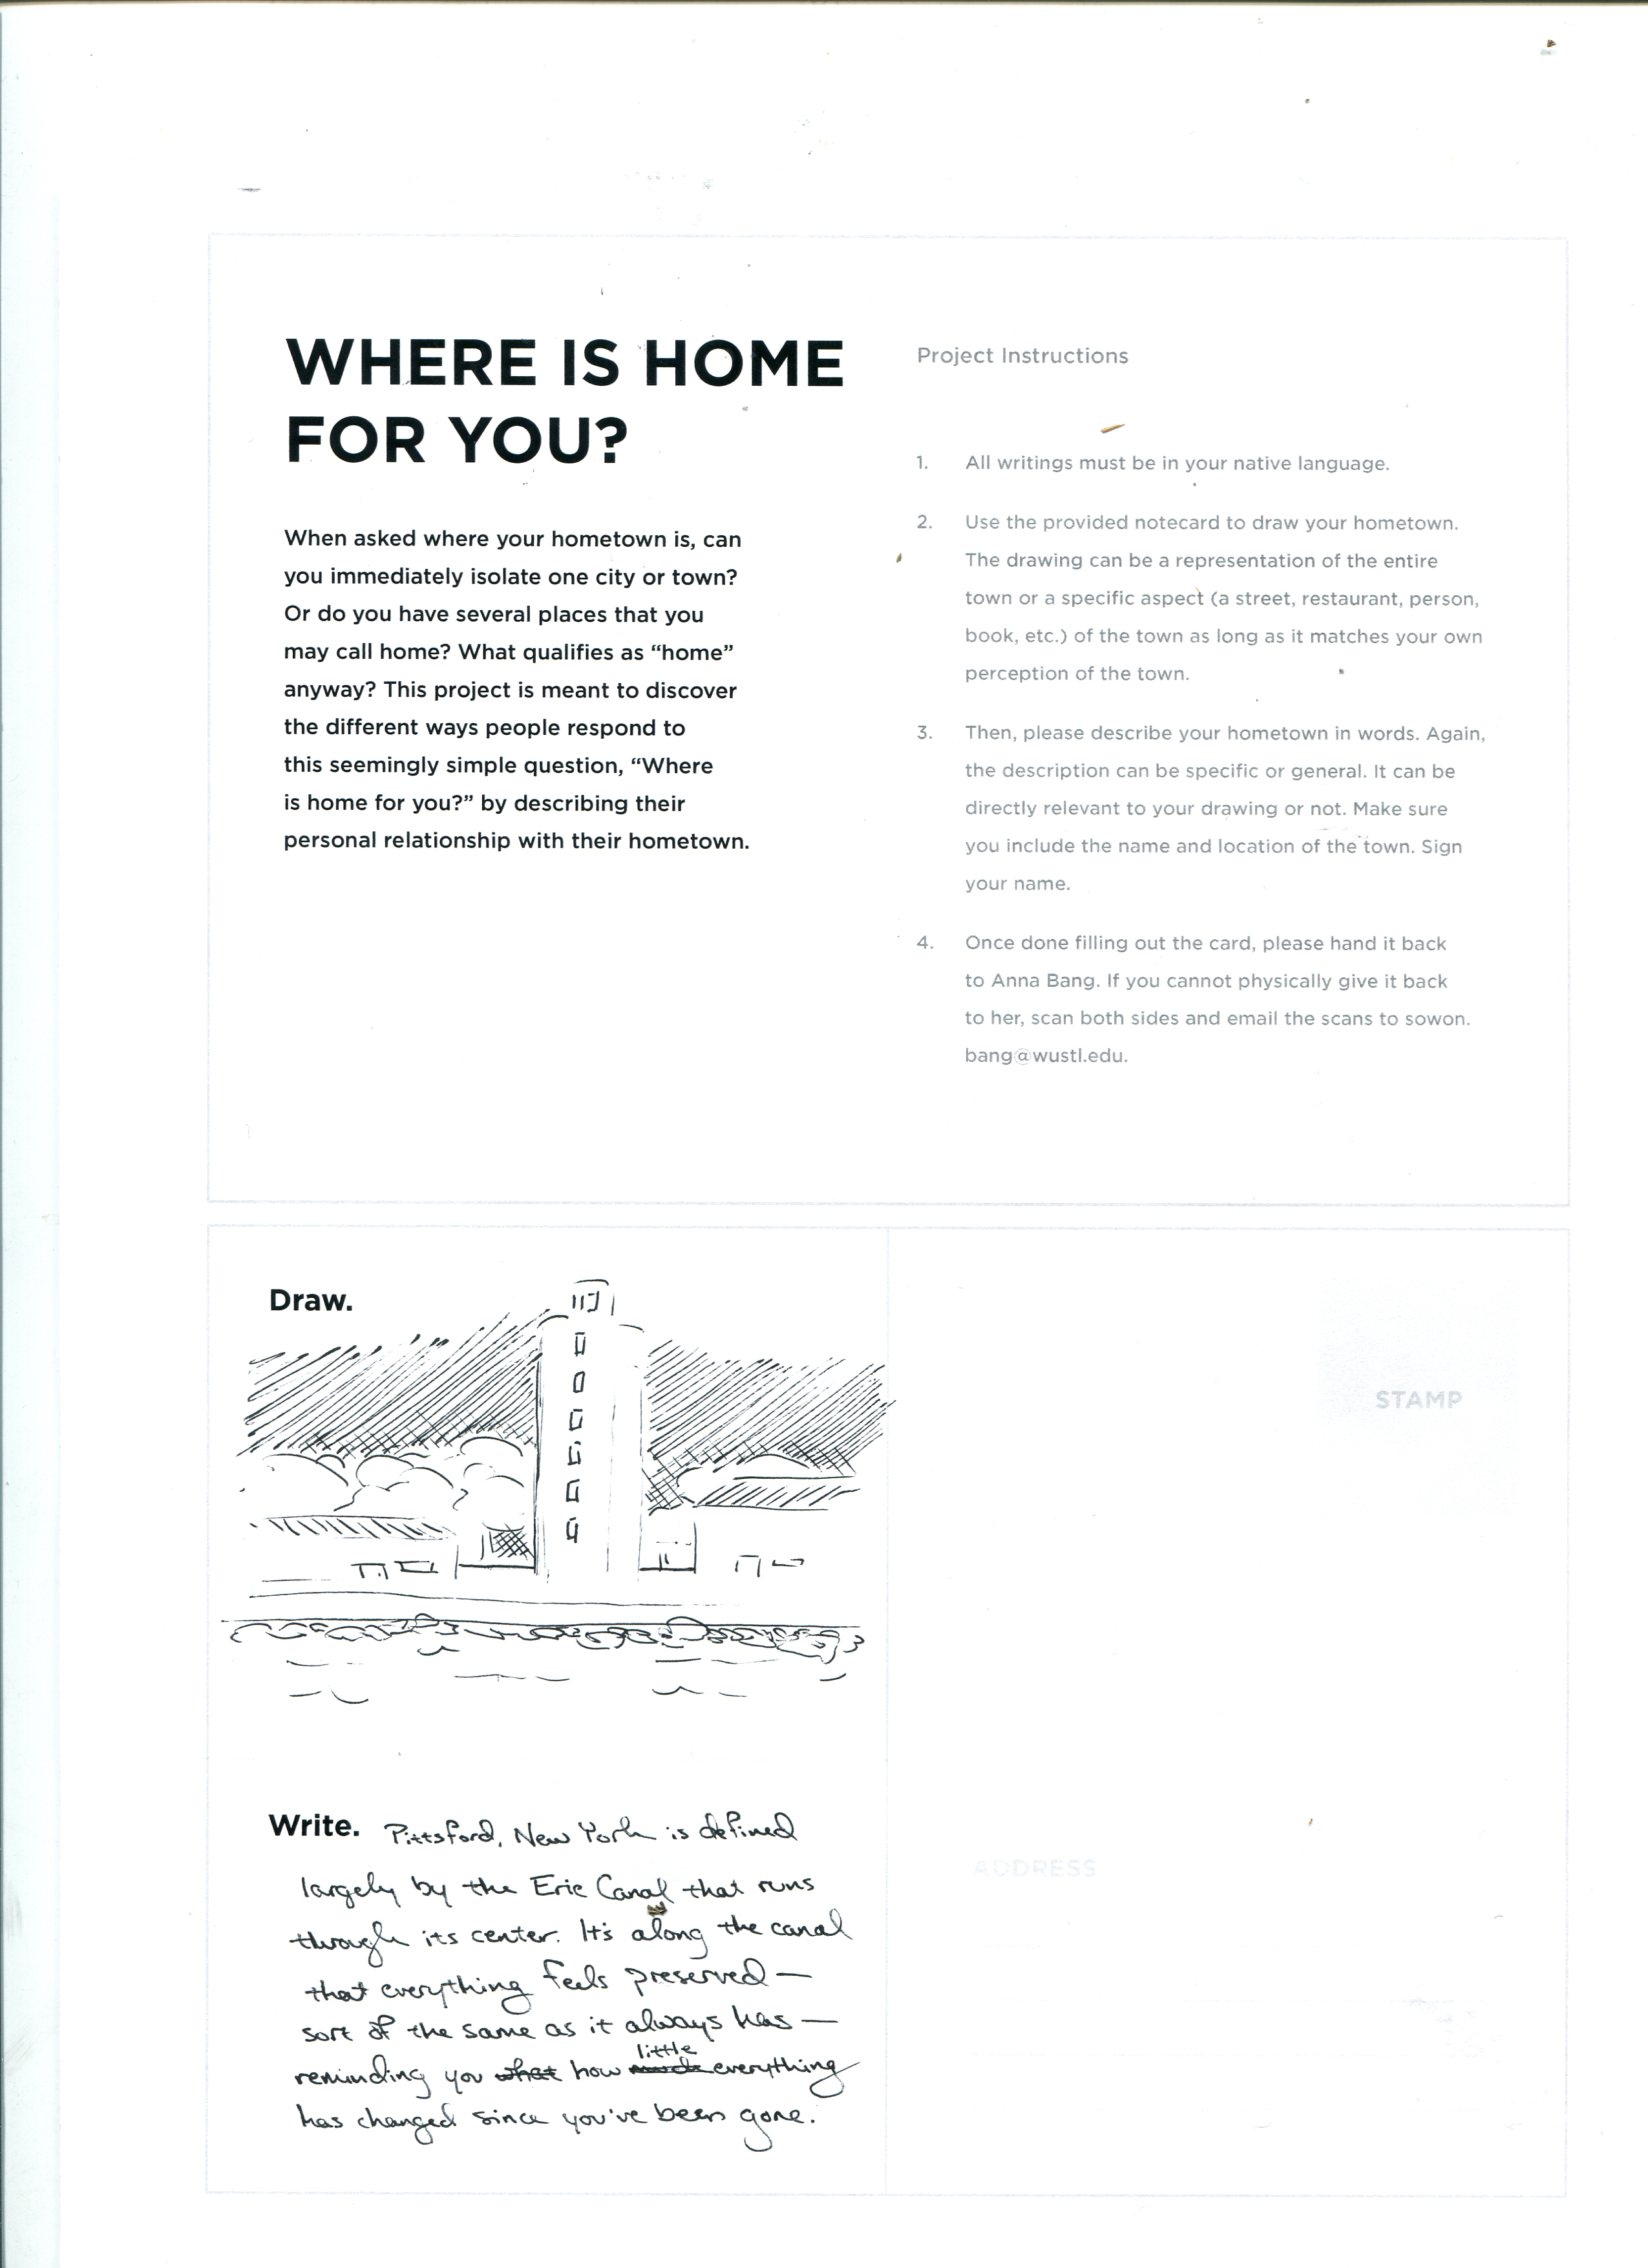 WHERE IS HOME
FOR YOU?
When asked where your hometown is, can
you immediately isolate one city or town?
Or do you have several places that you
may call home? What qualifies as “home”
anyway? This project is meant to discover
the different ways people respond to
this seemingly simple question, “Where
is home for you?” by describing their
personal relationship with their hometown.
Project Instructions
1. All writings must be in your native language.
2. Use the provided notecard to draw your hometown.
The drawing can be a representation of the entire
town or a specific aspect (a street, restaurant, person,
book, etc.) of the town as long as it matches your own
perception of the town.
3. Then, please describe your hometown in words. Again,
the description can be specific or general. It can be
directly relevant to your drawing or not. Make sure
you include the name and location of the town. Sign
your name.
4. Once done filling out the card, please hand it back
to Anna Bang. If you cannot physically give it back
to her, scan both sides and email the scans to sowon.
bang@wustl.edu.
Draw.
Write. Pittsford, New York is defined
largely by the Erie Canal that runs
through its center. It's along the canal
that everything feels preserved—
sort of the same as it always has—
reminding you what how little much everything
has changed since you've been gone.
STAMP
ADDRESS